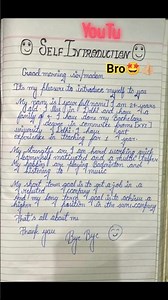 YouTu
SELF INTRODUCTION
Bro
Good morning sir/madam.
It's my pleasure to introduce myself to you
My name is (your full name) I am 24 years
old I am
family of I have done my Bachelors
degree in commerce from DU
university Delhi I have
experience in teaching for 1 year.
My strengths are I am hard working
myself motivated and a
My hobbies are playing Badminton and
listening to music
My short term goal is to get a job in a
reputed company
And my long term goal is to achieve a
higher position in the same company
That's all about me
Thank you
Bye Bye